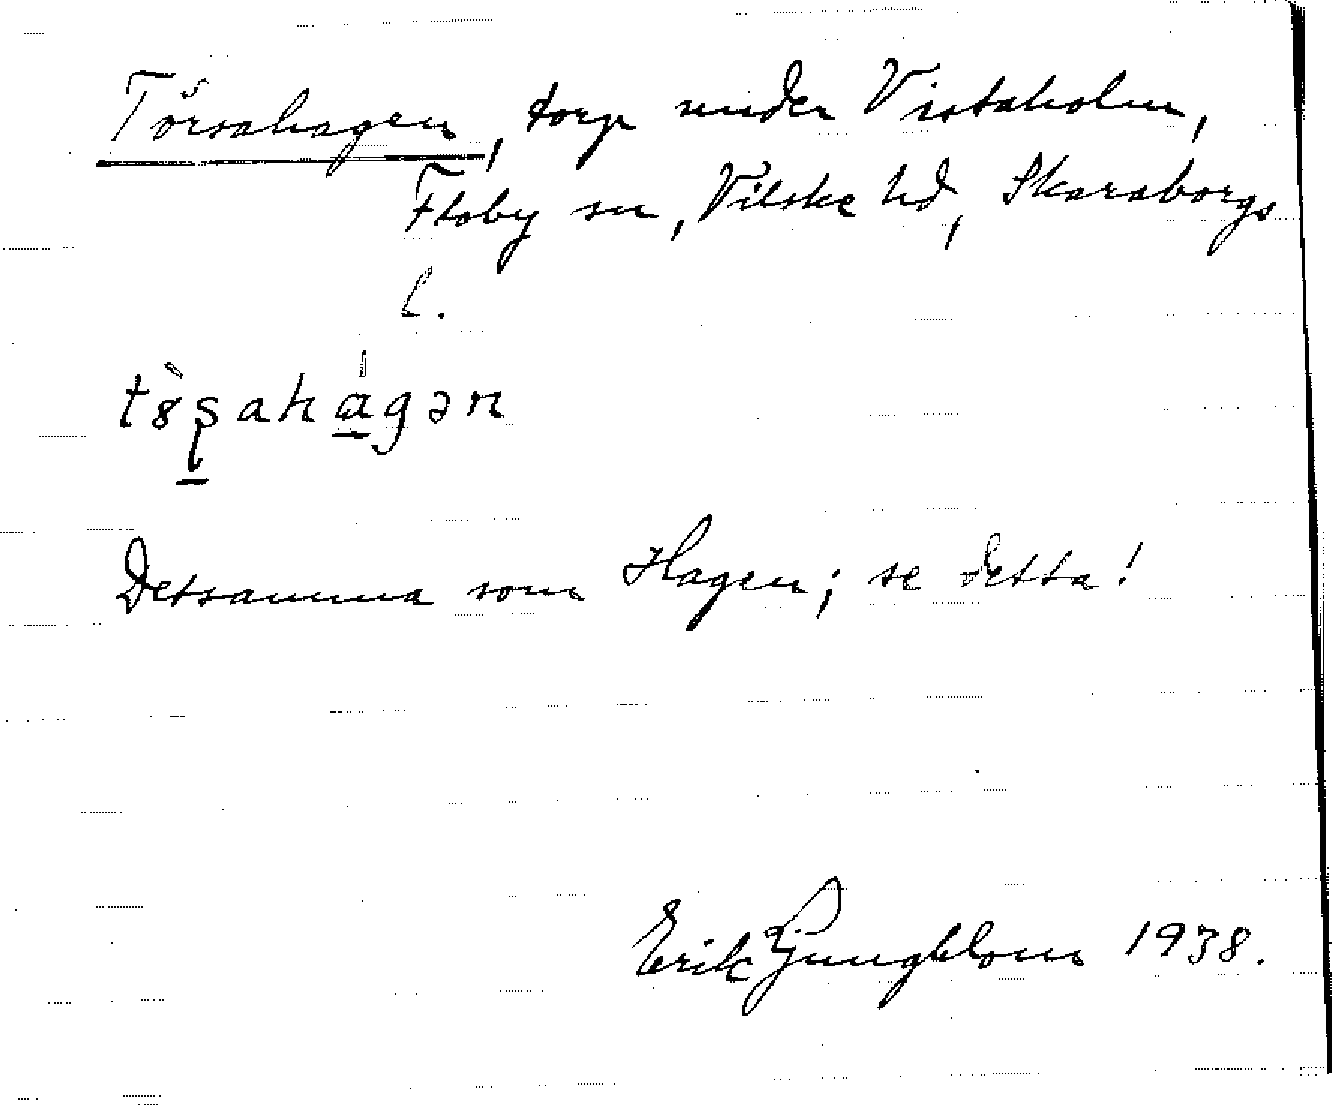 Törsahagen, torp under Vistaholm,
Floby sn, Vilske hd, Skaraborgs
l.
tö̀ʂahágən
Detsamma som Hagen; se detta!
Erik Ljungblom 1938.